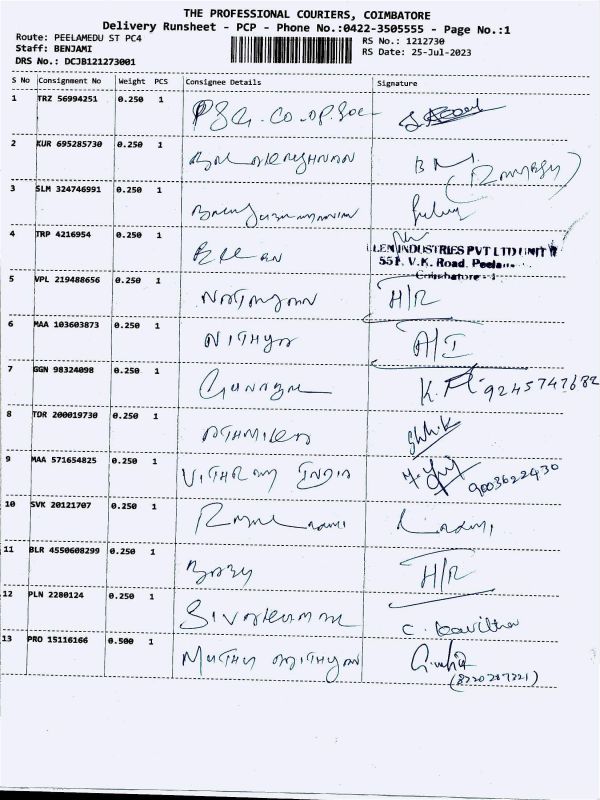 THE PROFESSIONAL COURIERS, COIMBATORE
Delivery Runsheet - PCP - Phone No.:0422-3505555 - Page No.:1
Route: PEELAMEDU ST PC4
RS No.: 1212730
Staff: BENJAMI
RS Date: 25-Jul-2023
DRS No.: DCJB121273001
S No Consignment No Weight PCS Consignee Details Signature
1 TRZ 56994251 0.250 1 PSG.CO.OP.Soc
2 KUR 695285730 0.250 1 BALAKRISHNAN
3 SLM 324746991 0.250 1
4 TRP 4216954 0.250 1
INDUSTRIES PVT LTD UNIT
551, V.K. Road, Peela
Coimbatore - 4
5 VPL 219488656 0.250 1 H/R
6 MAA 103603873 0.250 1 NITHYA A/I
7 GGN 98324098 0.250 1 GUNASEKAR 9245747682
8 TDR 200019730 0.250 1
9 MAA 571654825 0.250 1 VITHRAM INDIA 9003622430
10 SVK 20121707 0.250 1
11 BLR 4550608299 0.250 1 H/R
12 PLN 2280124 0.250 1 SIVAKUMAR C. Kavitha
13 PRO 15116166 0.500 1 MUTHU NITHYAN
(8220287221)